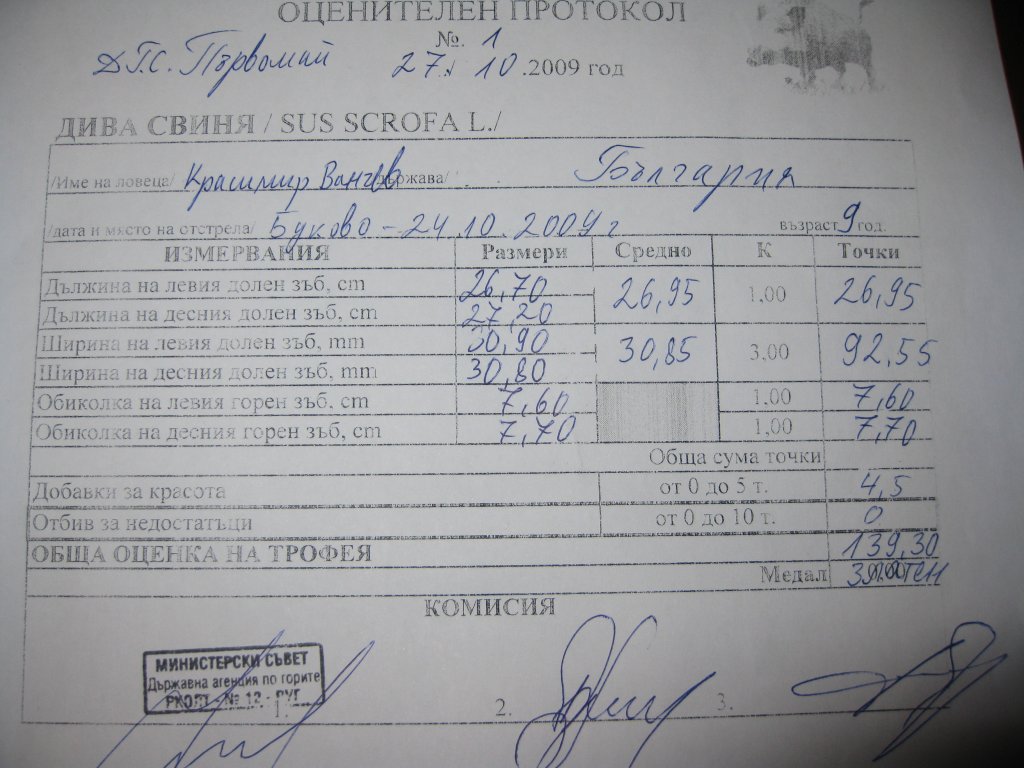 ОЦЕНИТЕЛЕН ПРОТОКОЛ
№. 1
ДГС. Първомай 27. 10 .2009 год
ДИВА СВИНЯ / SUS SCROFA L./
/Име на ловеца/ Красимир Ванчев държава/ България
/дата и място на отстрела/ Буково - 24.10.2009 г възраст 9 год.
ИЗМЕРВАНИЯ Размери Средно К Точки
Дължина на левия долен зъб, cm 26,70 26,95 1.00 26,95
Дължина на десния долен зъб, cm 27,20
Ширина на левия долен зъб, mm 30,90 30,85 3.00 92,55
Ширина на десния долен зъб, mm 30,80
Обиколка на левия горен зъб, cm 7,60 1.00 7,60
Обиколка на десния горен зъб, cm 7,70 1.00 7,70
Обща сума точки
Добавки за красота от 0 до 5 т. 4,5
Отбив за недостатъци от 0 до 10 т. 0
ОБЩА ОЦЕНКА НА ТРОФЕЯ 139,30
Медал
КОМИСИЯ
МИНИСТЕРСКИ СЪВЕТ
Държавна агенция по горите
№ 12 -
1. 2. 3.